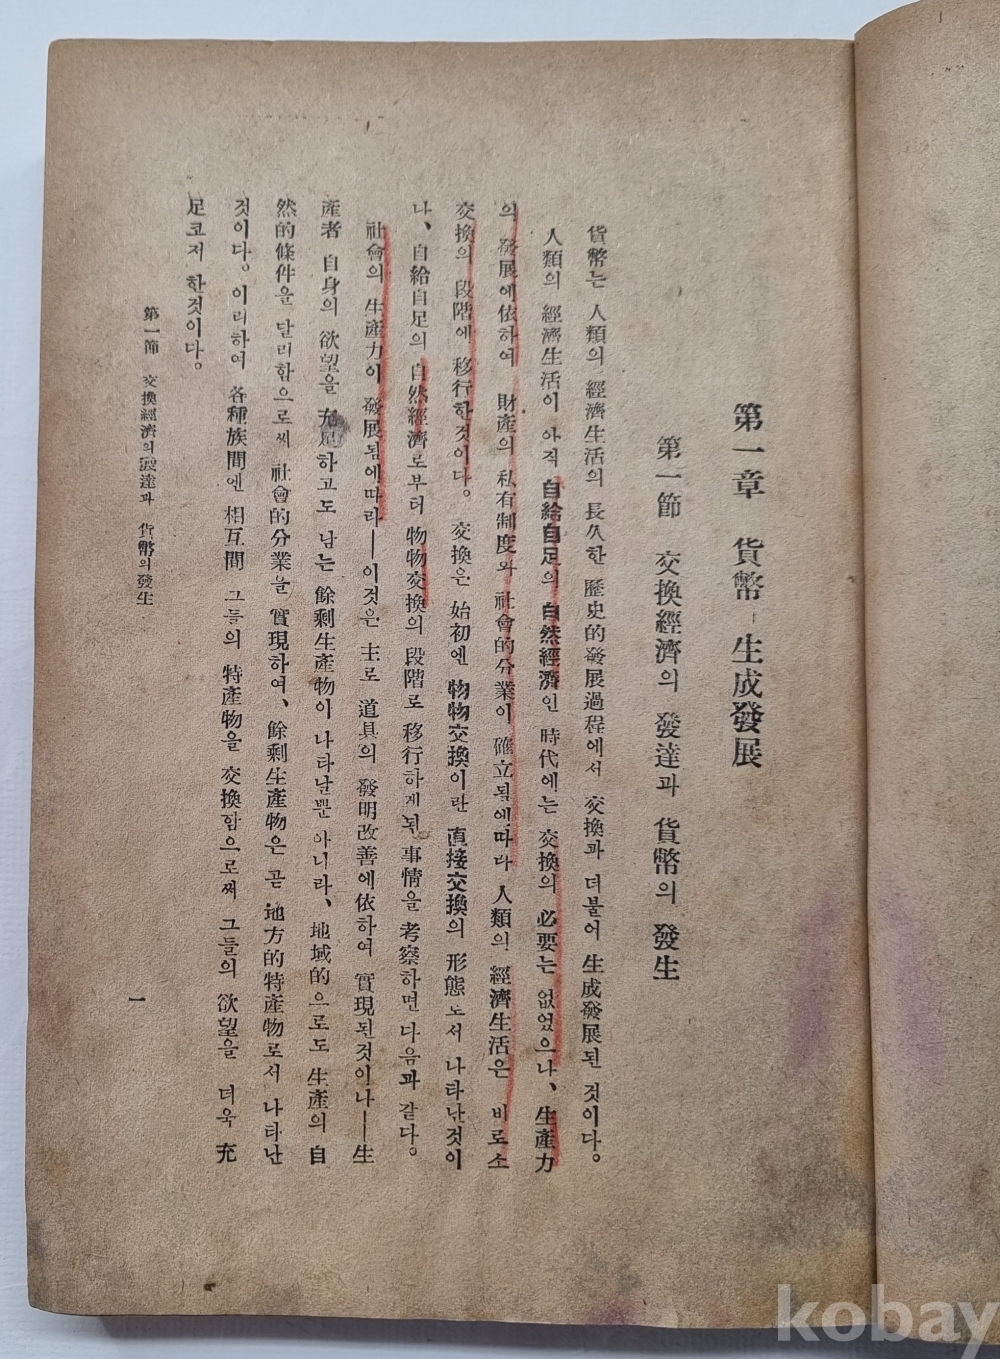 第一章 貨幣 生成發展
第一節 交換經濟의 發達과 貨幣의 發生
貨幣는 人類의 經濟生活의 長久한 歷史的發展過程에서 交換과 더불어 生成發展된 것이다。
人類의 經濟生活이 아직 自給自足의 自然經濟인 時代에는 交換의 必要는 없었으나、生產力
의 發展에依하여 財產의 私有制度와 社會的分業이 確立됨에따라 人類의 經濟生活은 비로소
交換의 段階에 移行한것이다。交換은 始初엔 物物交換이란 直接交換의 形態로서 나타난것이
나、自給自足의 自然經濟로부터 物物交換의 段階로 移行하게된 事情을 考察하면 다음과 같다。
社會의 生產力이 發展됨에따라──이것은 主로 道具의 發明改善에依하여 實現된것이나──生
產者 自身의 欲望을 充足하고도 남는 餘剩生產物이 나타날뿐 아니라、地域的으로도 生產의 自
然的條件을 달리함으로써 社會的分業을 實現하여、餘剩生產物은 곧 地方的特產物로서 나타난
것이다。이리하여 各種族間엔 相互間 그들의 特產物을 交換함으로써 그들의 欲望을 더욱 充
足코저 한것이다。
第一節 交換經濟의 發達과 貨幣의 發生
一
kobay